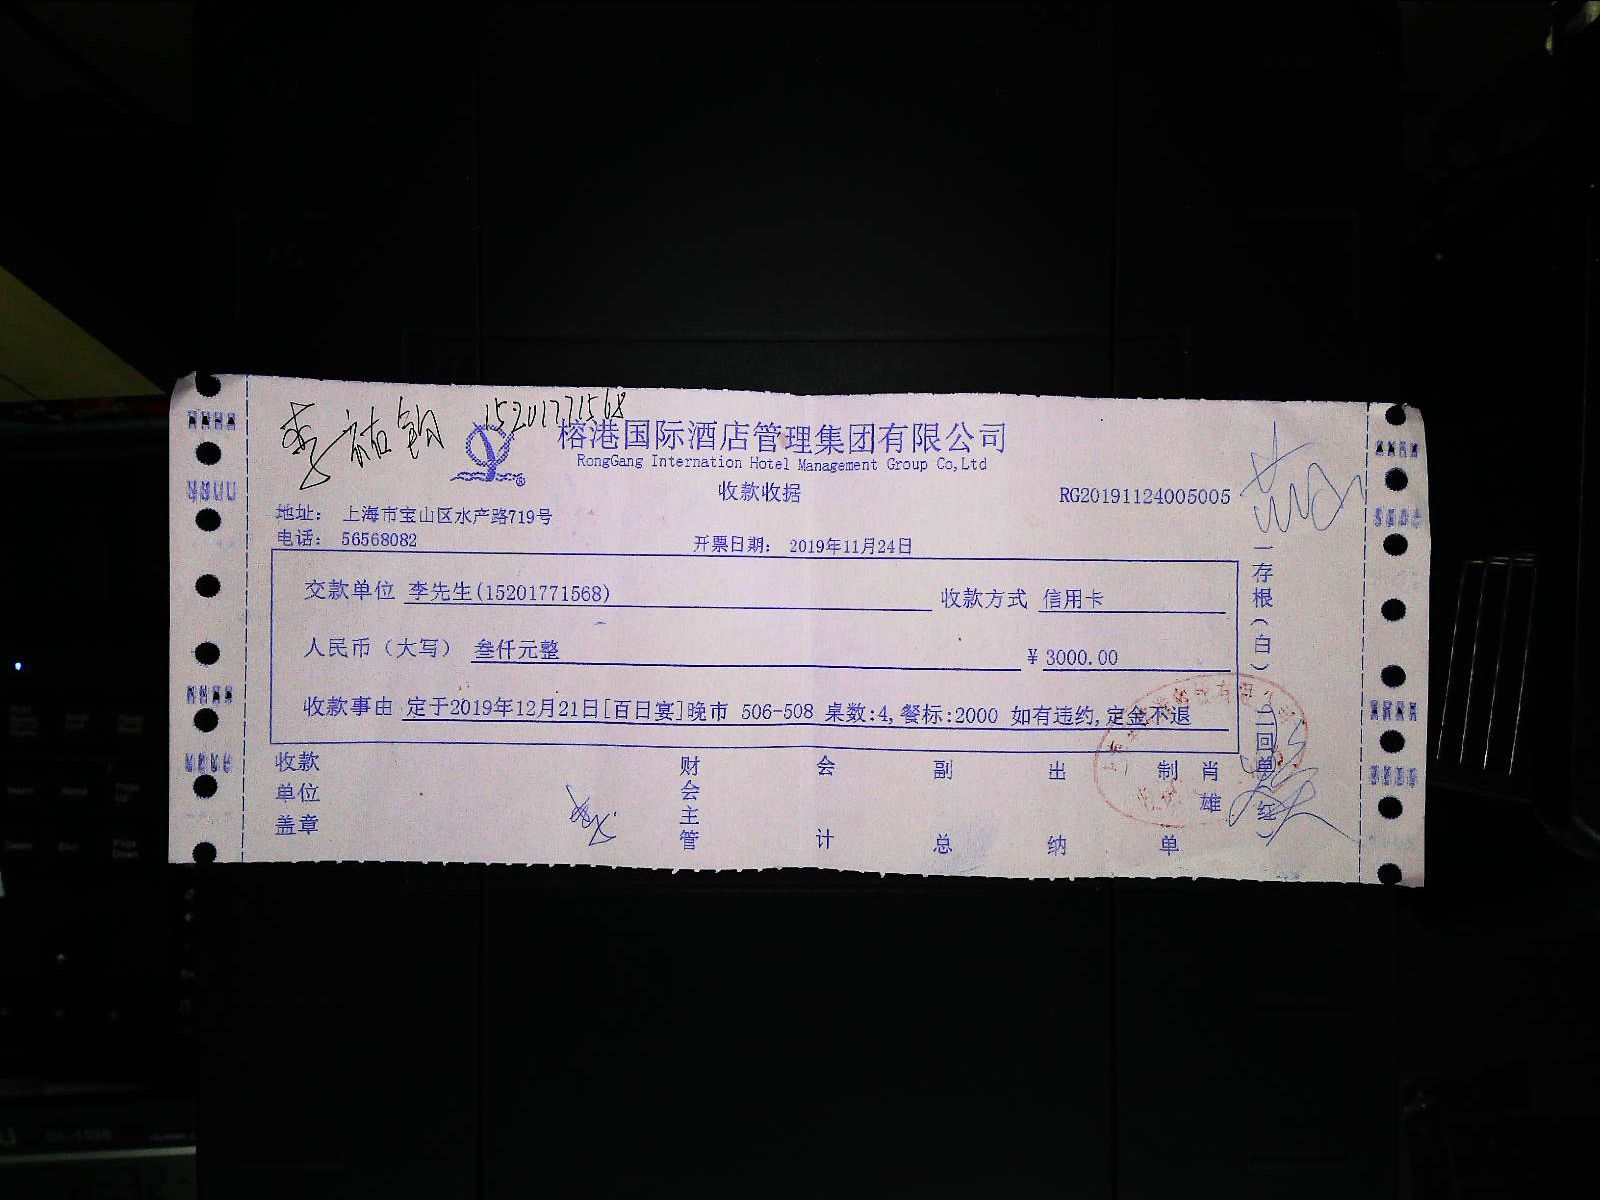 李祐钧 15201771568
榕港国际酒店管理集团有限公司
RongGang Internation Hotel Management Group Co,Ltd
收款收据
RG20191124005005
地址： 上海市宝山区水产路719号
电话： 56568082
开票日期： 2019年11月24日
交款单位 李先生(15201771568) 收款方式 信用卡
人民币（大写） 叁仟元整 ¥ 3000.00
收款事由 定于2019年12月21日[百日宴]晚市 506-508 桌数:4,餐标:2000 如有违约,定金不退
收款单位盖章
财会主管
会计
副总
出纳
制单
肖雄
一存根(白)二回单(红)